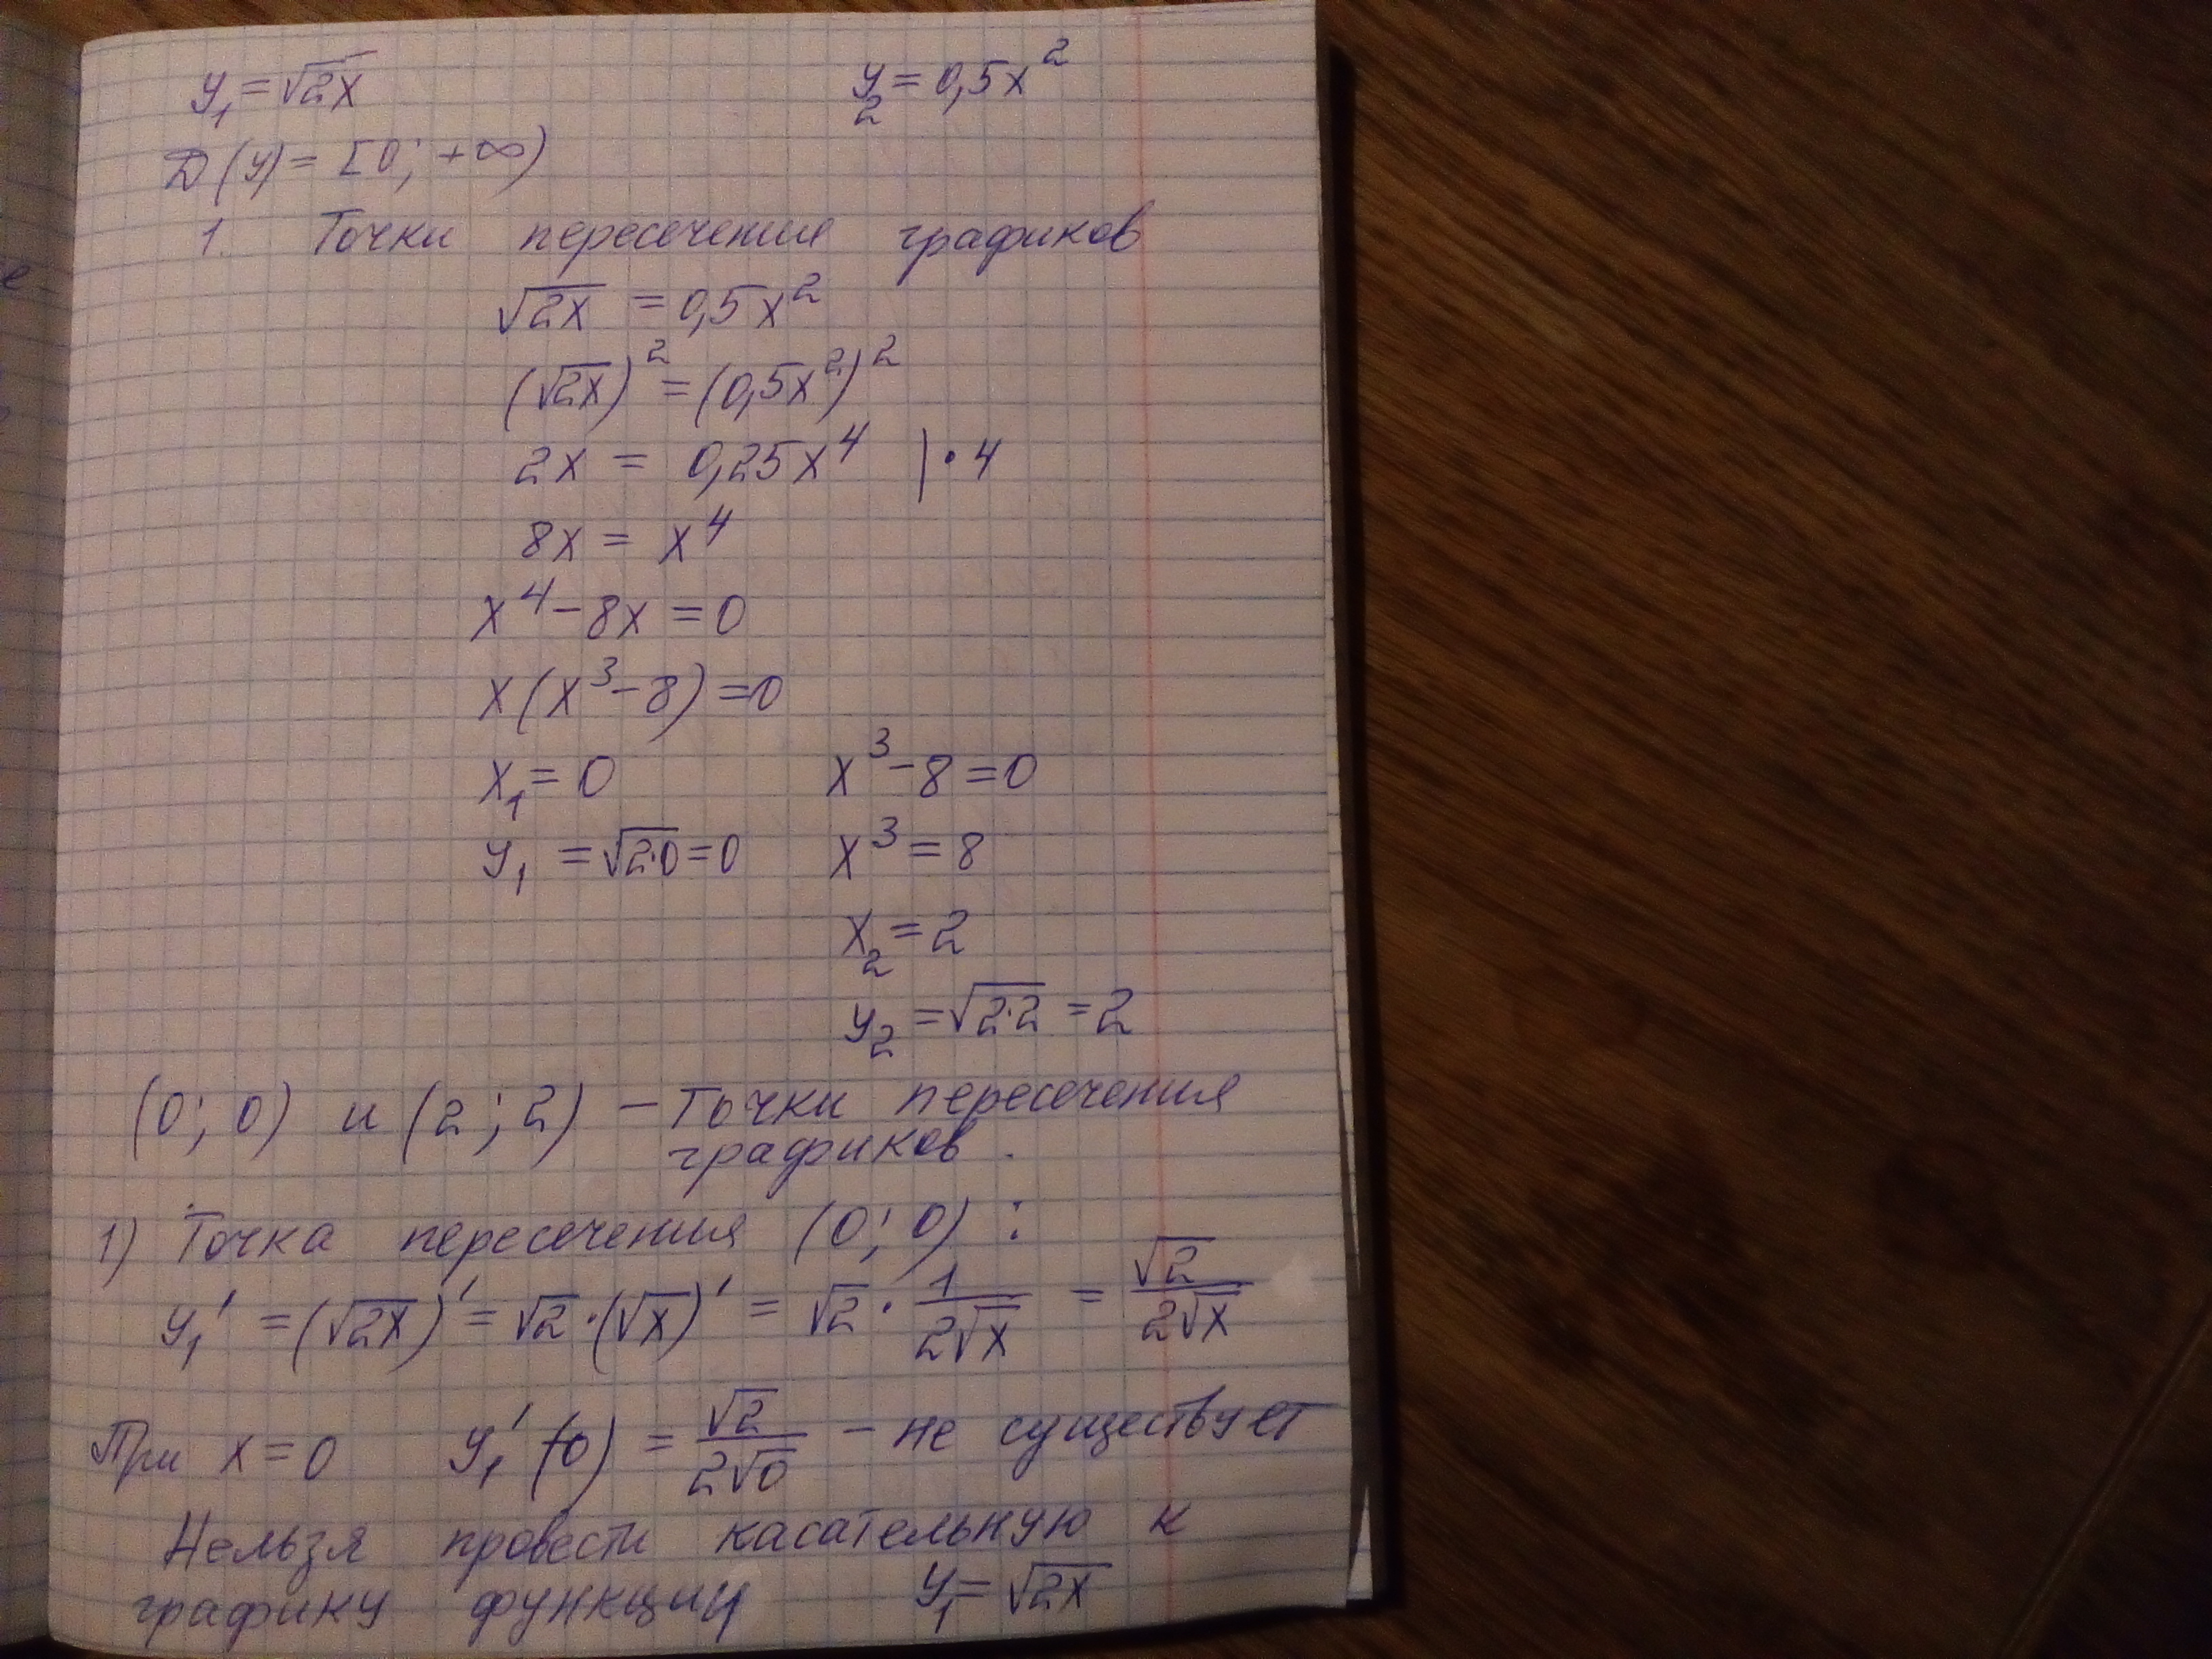 y₁ = √2x y₂ = 0,5x²
D(y) = [0; +∞)
1. Точки пересечения графиков
√2x = 0,5x²
(√2x)² = (0,5x²)²
2x = 0,25x⁴ |·4
8x = x⁴
x⁴ - 8x = 0
x(x³ - 8) = 0
x₁ = 0 x³ - 8 = 0
y₁ = √2·0 = 0 x³ = 8
x₂ = 2
y₂ = √2·2 = 2
(0; 0) и (2; 2) - точки пересечения
графиков.
1) Точка пересечения (0; 0):
y₁' = (√2x)' = √2·(√x)' = √2·1/(2√x) = √2/(2√x)
При x = 0 y₁'(0) = √2/(2√0) - не существует
Нельзя провести касательную к
графику функции y₁ = √2x